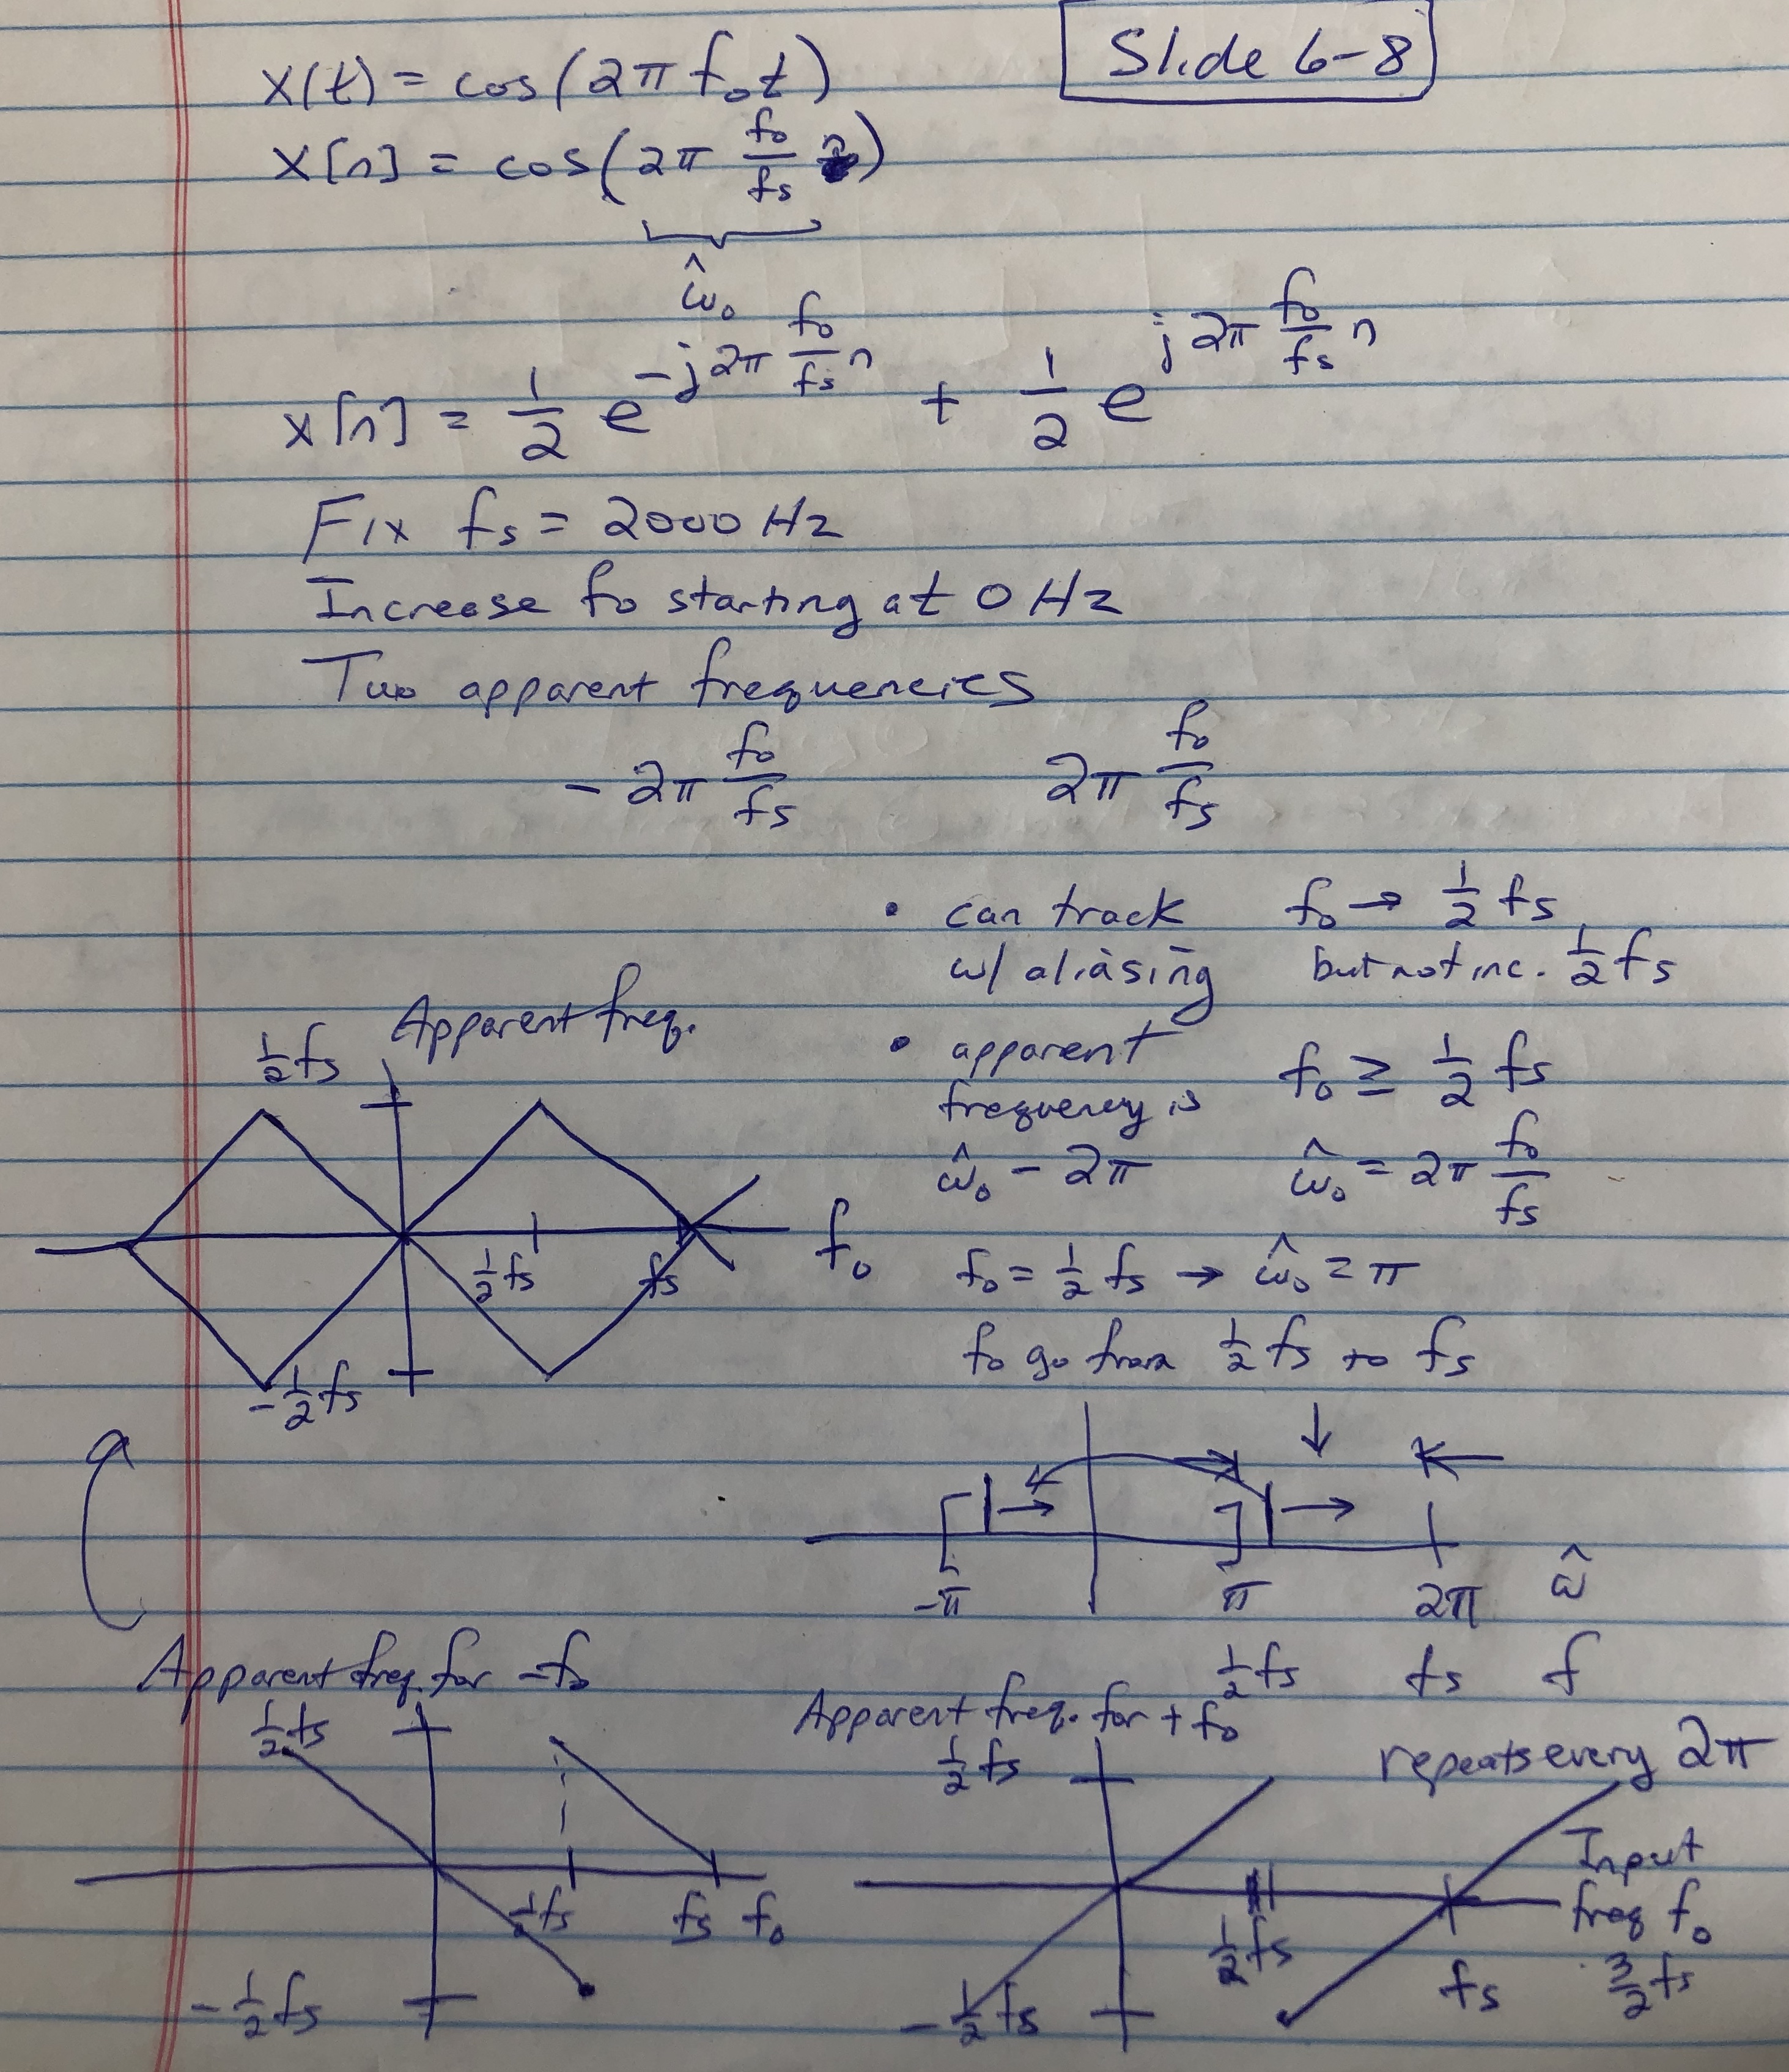 Slide 6-8
x(t) = cos(2π f₀t)
x[n] = cos(2π f₀/fs n)
ω̂₀
x[n] = 1/2 e^(-j2π f₀/fs n) + 1/2 e^(j2π f₀/fs n)
Fix fs = 2000 Hz
Increase f₀ starting at 0 Hz
Two apparent frequencies
-2π f₀/fs 2π f₀/fs
• can track f₀ → 1/2 fs
w/ aliasing but not inc. 1/2 fs
• apparent f₀ ≥ 1/2 fs
frequency is
ω̂₀ - 2π ω̂₀ = 2π f₀/fs
f₀ = 1/2 fs → ω̂₀ = π
f₀ go from 1/2 fs to fs
Apparent freq.
1/2 fs
1/2 fs fs f₀
-1/2 fs
-π π 2π ω̂
1/2 fs fs f
Apparent freq. for -f₀
1/2 fs
1/2 fs fs f₀
-1/2 fs
Apparent freq. for +f₀
1/2 fs
repeats every 2π
Input
freq f₀
1/2 fs fs 3/2 fs
-1/2 fs